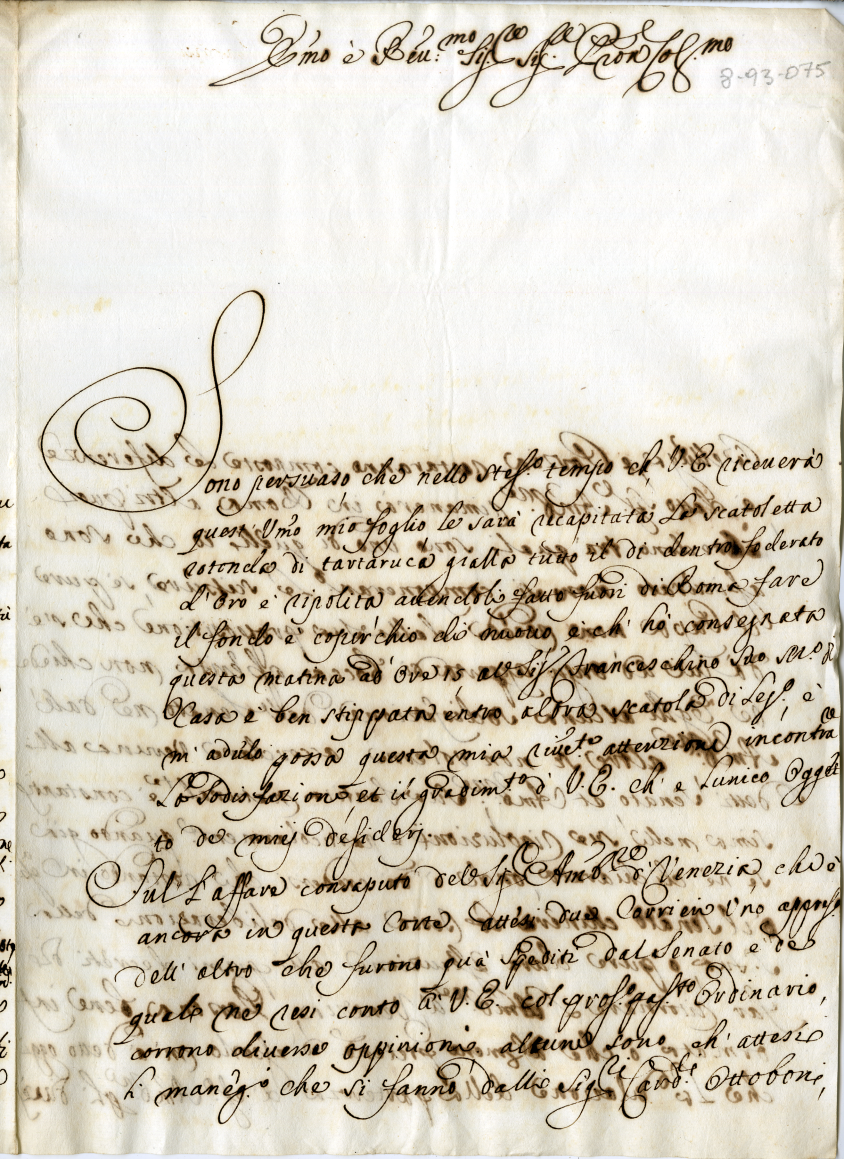 Em̃o è Reu.mo Sig.re Sig.re Pron Col.mo
8-93-075
Sono persuaso che nello stess.o tempo ch' V. E. riceuerà
quest' Vm̃o mio foglio le sarà recapitata La scatoletta
rotonda di tartaruca gialla tutto il di dentro foderato
d'oro e ripolita auendoli fatto fuori di Roma fare
il fondo e copirchio di nuouo, e ch' hò consegnata
questa matina ad' Ore 15 al Sig.r Franceschino suo M.o di
Casa e ben stippata entro altra scatola di Leg.o, è
m' adulo possa questa mia riuet.e attenzione incontra.e
La sodisfazione, et il gradim.to d' V. E. ch' e Lunico Ogget
to de miej desiderj.
Sul L'affare consaputo del Sig.r Amb.re di Venezia che è
ancora in questa Corte attesi due Corrieri l'no appress.o
dell' altro che furono quà spediti dal Senato e de
quali ne resi conto à V. E. col pros.o pass.to Ordinario,
corrono diuerse oppinioni alcune sono, ch' attesi
li maneg.i che si fanno dalli Sig.ri Card.li Ottoboni,